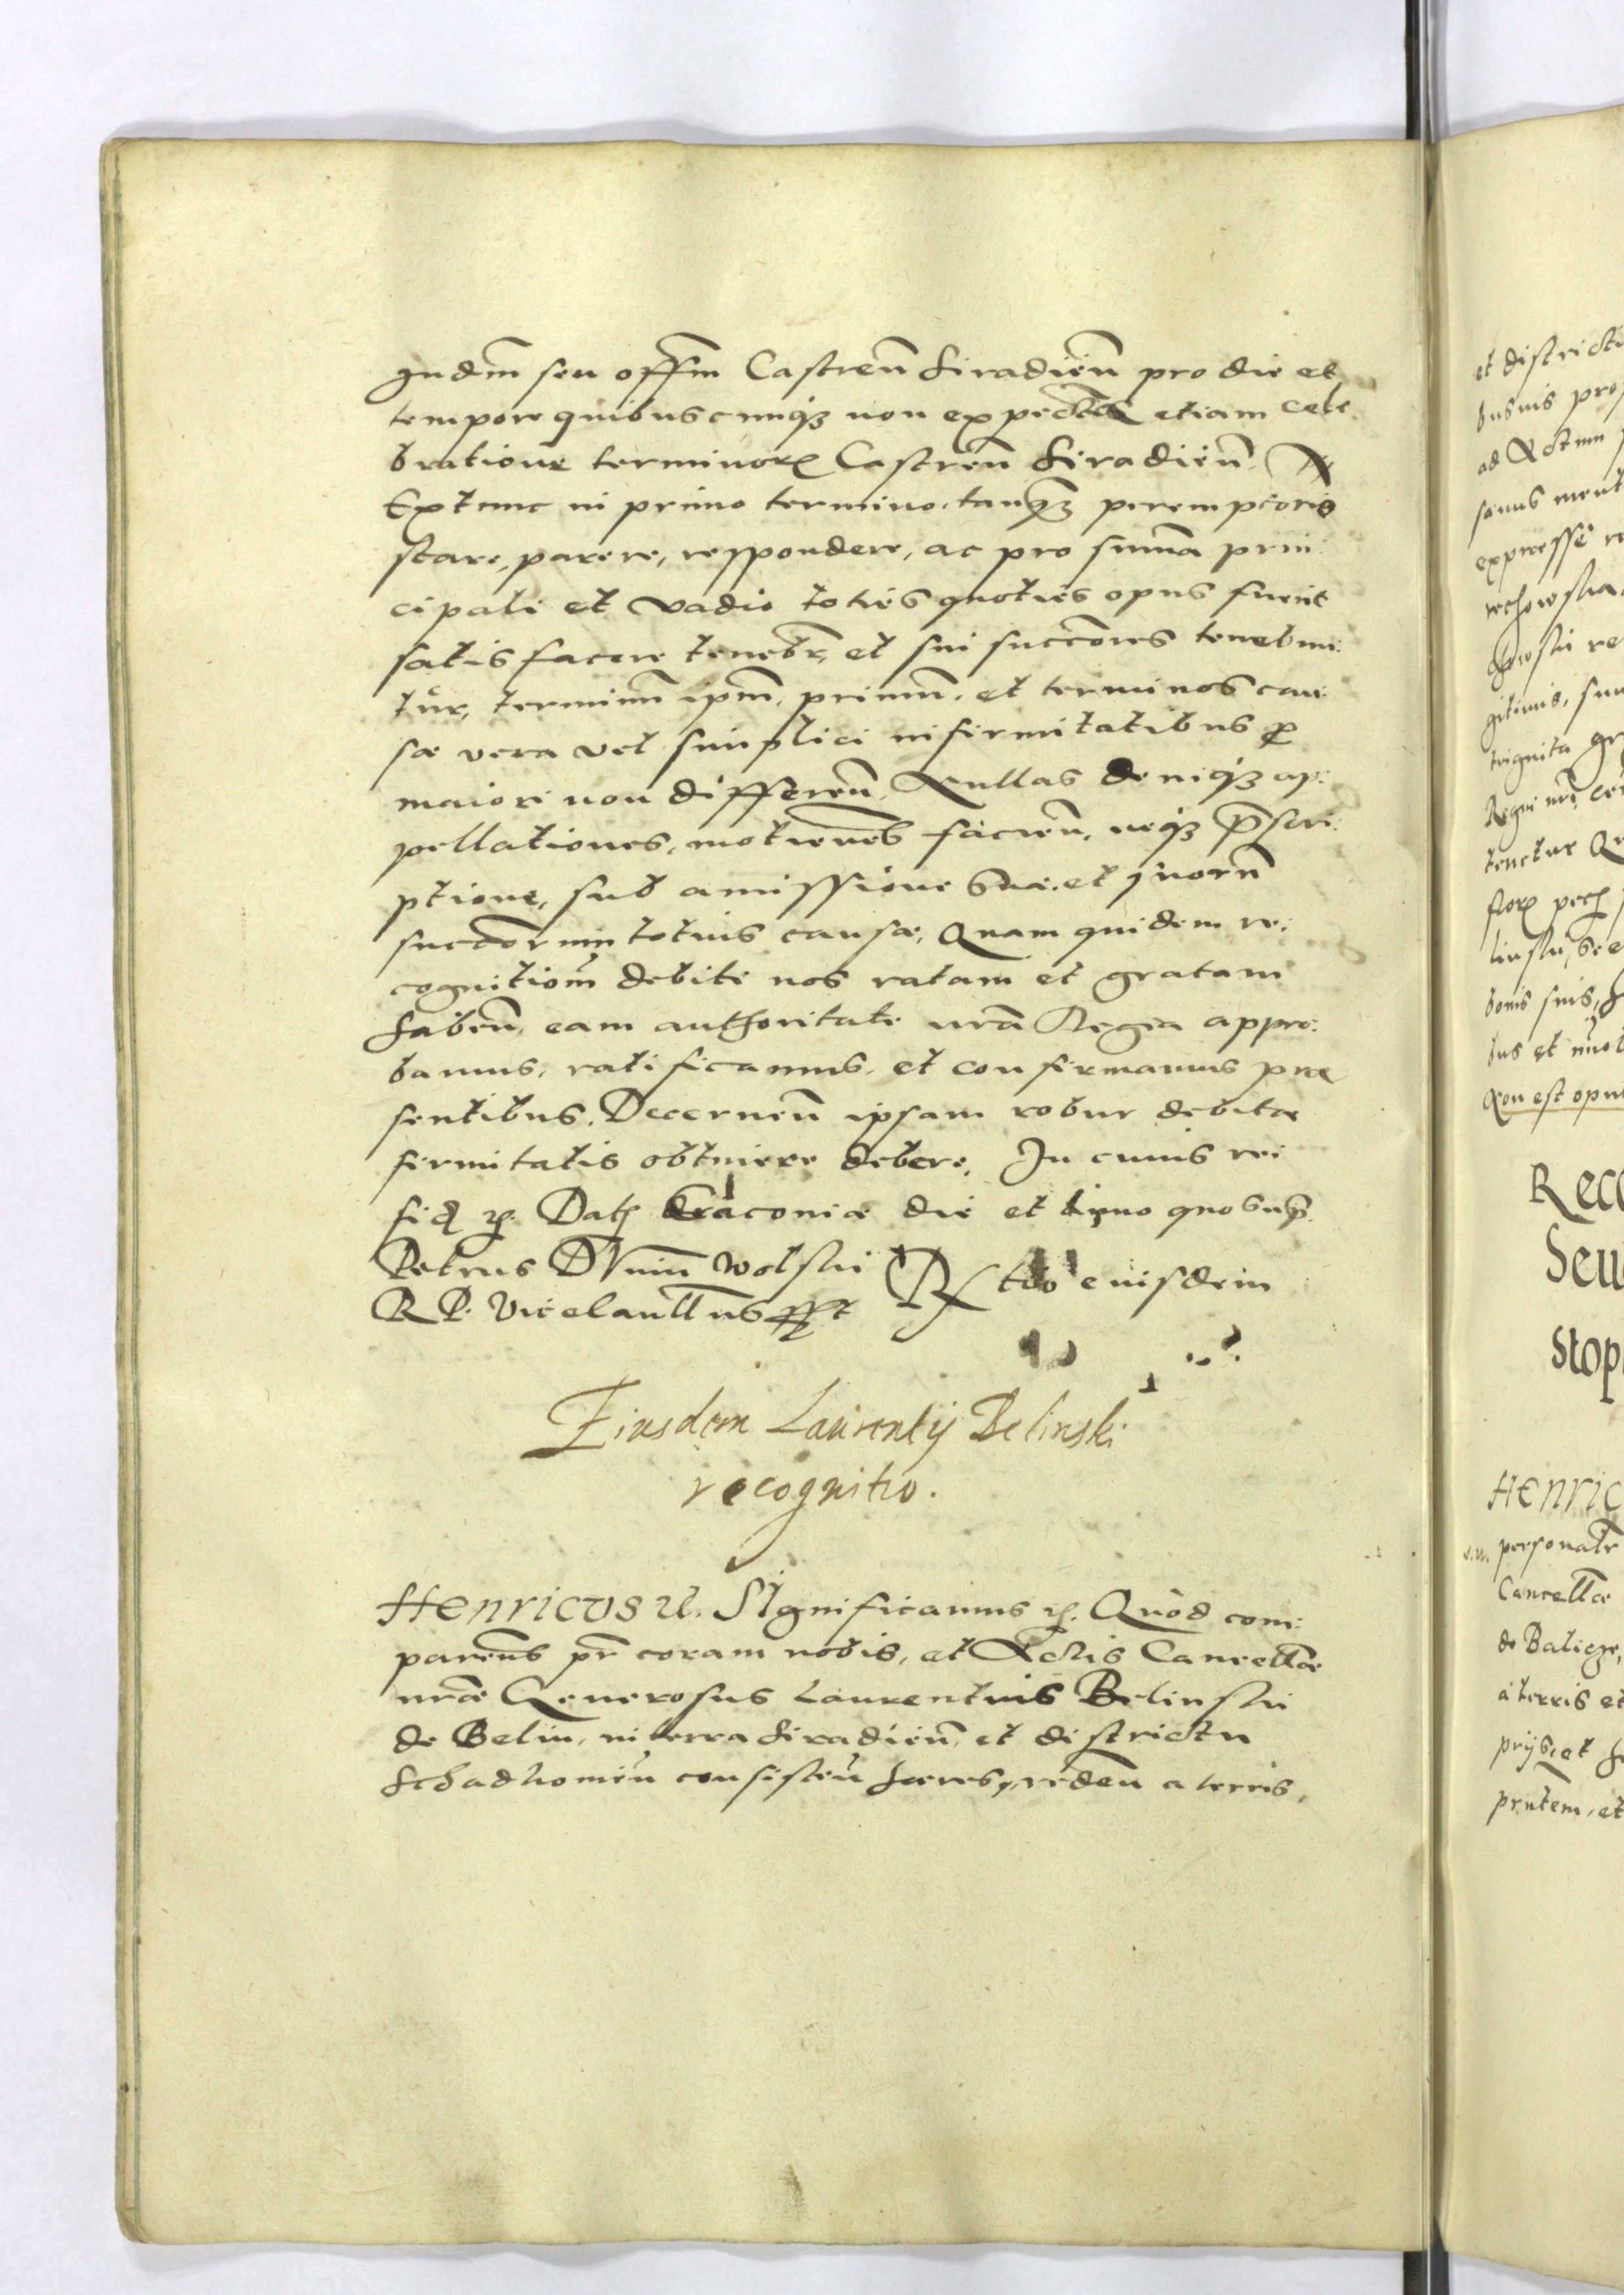 Judm seu offm Castren Siradien pro die et
tempore quibuscumq3 non expectata etiam cele
bratione terminor Castren Siradien
Extunc in primo termino tanq3 peremptorio
stare, parere, respondere, ac pro suma prin:
cipali et vadio toties quoties opus fuerit
satisfacere tenebr, et sui succores tenebun:
tur, terminu ipm, primu, et terminos cau:
sæ vera vel simplici infirmitatibus p
maiori non differen. Nullas deniq3 ap:
pellationes, motiones facien, neq3 pscri:
ptione, sub amissione suæ, et suoru
succorum totius causæ, Quam quidem re:
cognitiom debite nos ratam et gratam
haben, eam authoritate nra Regia appro:
bamus, ratificamus, et confirmamus præ
sentibus. Decernen ipsam robur debitæ
firmitatis obtinere debere, In cuius rei
fid Dat Craconiæ die et anno quo supr.
Petrus Dunin Wolski
R P. Vicecanllrius sst Rlatio eiusdem
Eiusdem Laurentij Belinski
recognitio.
Henricus &. Significamus Quod com:
parens pr coram nobis, et Actis Cancellæ
nræ Generosus Laurentius Belinski
de Belin, in terra Siradien, et districtu
Schadkouien consisten hæres, reden a terris,
et districti
busuis pro
ad Actum
sanus ment
expresse re
gitimis, suu
triginta gr
Regni nri, ce
tenetur
bonis suis,
Non est opu
Reco
Seu
Stop
Henric
personalr
Cancellæ
de Balicze,
a terris et
prijs, et
prntem, et